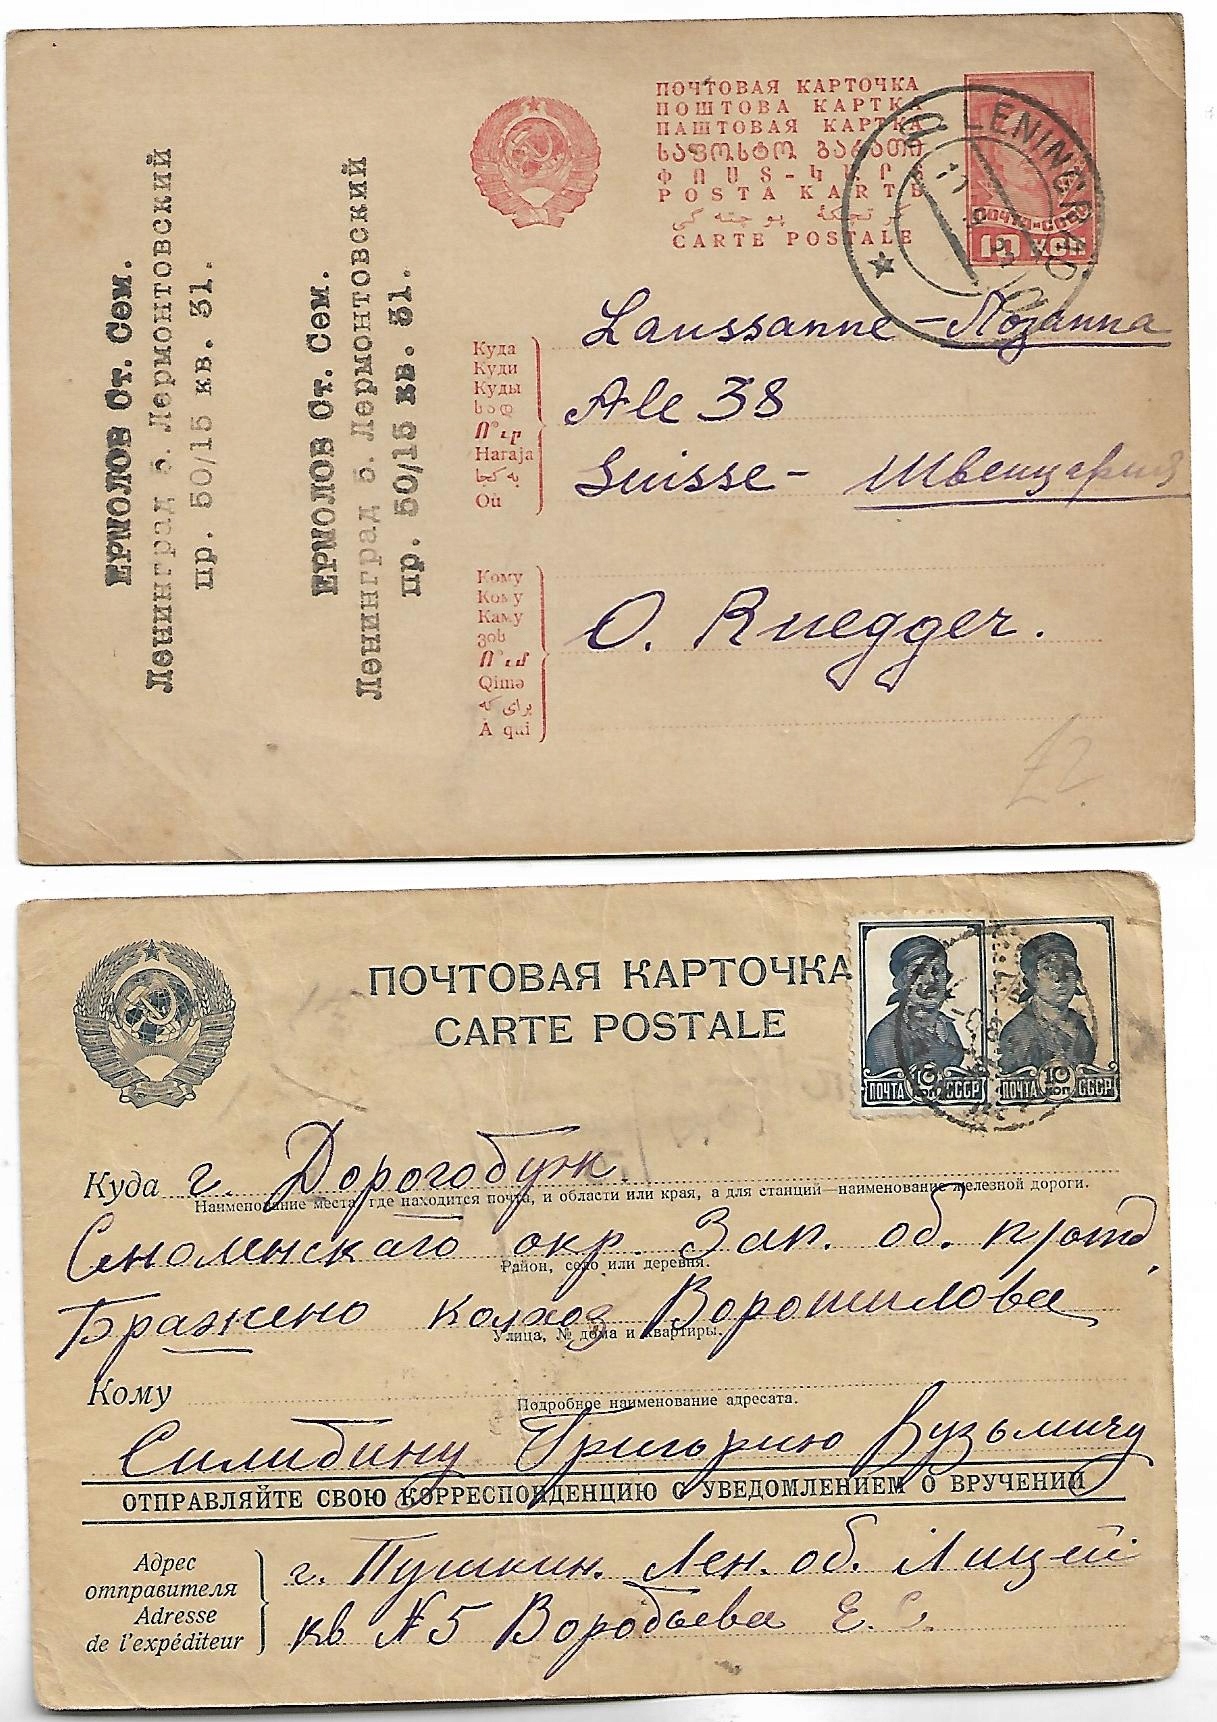 ПОЧТОВАЯ КАРТОЧКА
ПОШТОВА КАРТКА
ПАШТОВАЯ КАРТКА
POSTA KARTЬ
CARTE POSTALE
LENINGRAD
ПОЧТА СССР
10 КОП
ЕРМОЛОВ Ст. Сем.
Ленинград 5. Лермонтовский
пр. 50/15 кв. 31.
ЕРМОЛОВ Ст. Сем.
Ленинград 5. Лермонтовский
пр. 50/15 кв. 31.
Куда
Куди
Куды
სად
Ո՞ւր
Haraja
به کجا
Où
Laussanne - Лозанна
Ale 38
Suisse - Швенцария
Кому
Кому
Каму
ვის
Ո՞ւմ
Qimə
برای که
À qui
O. Ruegger.
ПОЧТОВАЯ КАРТОЧКА
CARTE POSTALE
ПОЧТА 10 КОП СССР
ПОЧТА 10 КОП СССР
Куда г. Дорогобуж.
Наименование места, где находится почта, и области или края, а для станций—наименование железной дороги.
Смоленскаго окр. Зап. об. п/отд,
Район, село или деревня.
Бражено колхоз Ворошилова
Улица, № дома и квартиры.
Кому
Подробное наименование адресата.
Силибину Григорию Кузьмичу
ОТПРАВЛЯЙТЕ СВОЮ КОРРЕСПОНДЕНЦИЮ С УВЕДОМЛЕНИЕМ О ВРУЧЕНИИ
Адрес
отправителя
Adresse
de l'expéditeur
г. Пушкин. Лен. об. Лицей
кв № 5 Воробьева Е. С.